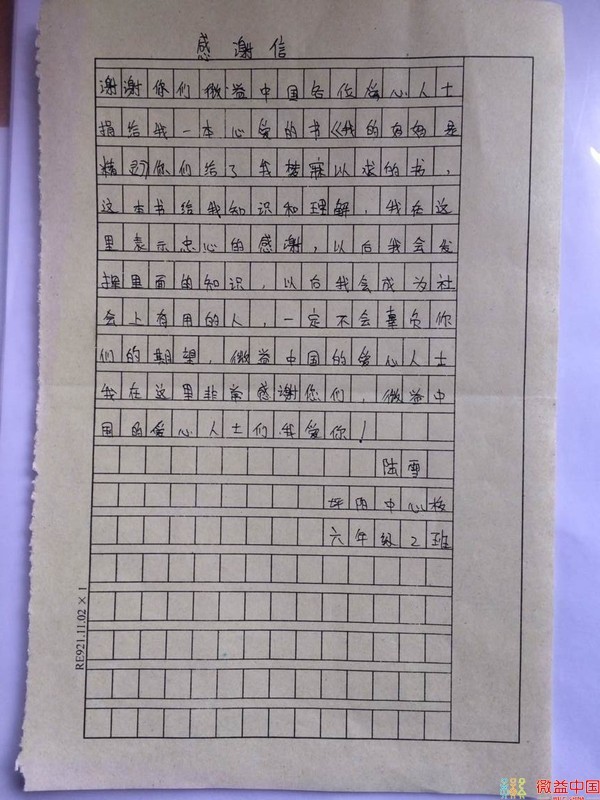 感谢信
谢谢你们微益中国各位爱心人士
捐给我一本心爱的书《我的妈妈是
精灵》你们给了我梦寐以求的书，
这本书给我知识和理解，我在这
里表示忠心的感谢，以后我会发
挥里面的知识，以后我会成为社
会上有用的人，一定不会辜负你
们的期望，微益中国的爱心人士
我在这里非常感谢您们，微益中
国的爱心人士们我爱你！
陆雪
坪阳中心校
六年级2班
RE921.11.02×1
微益中国